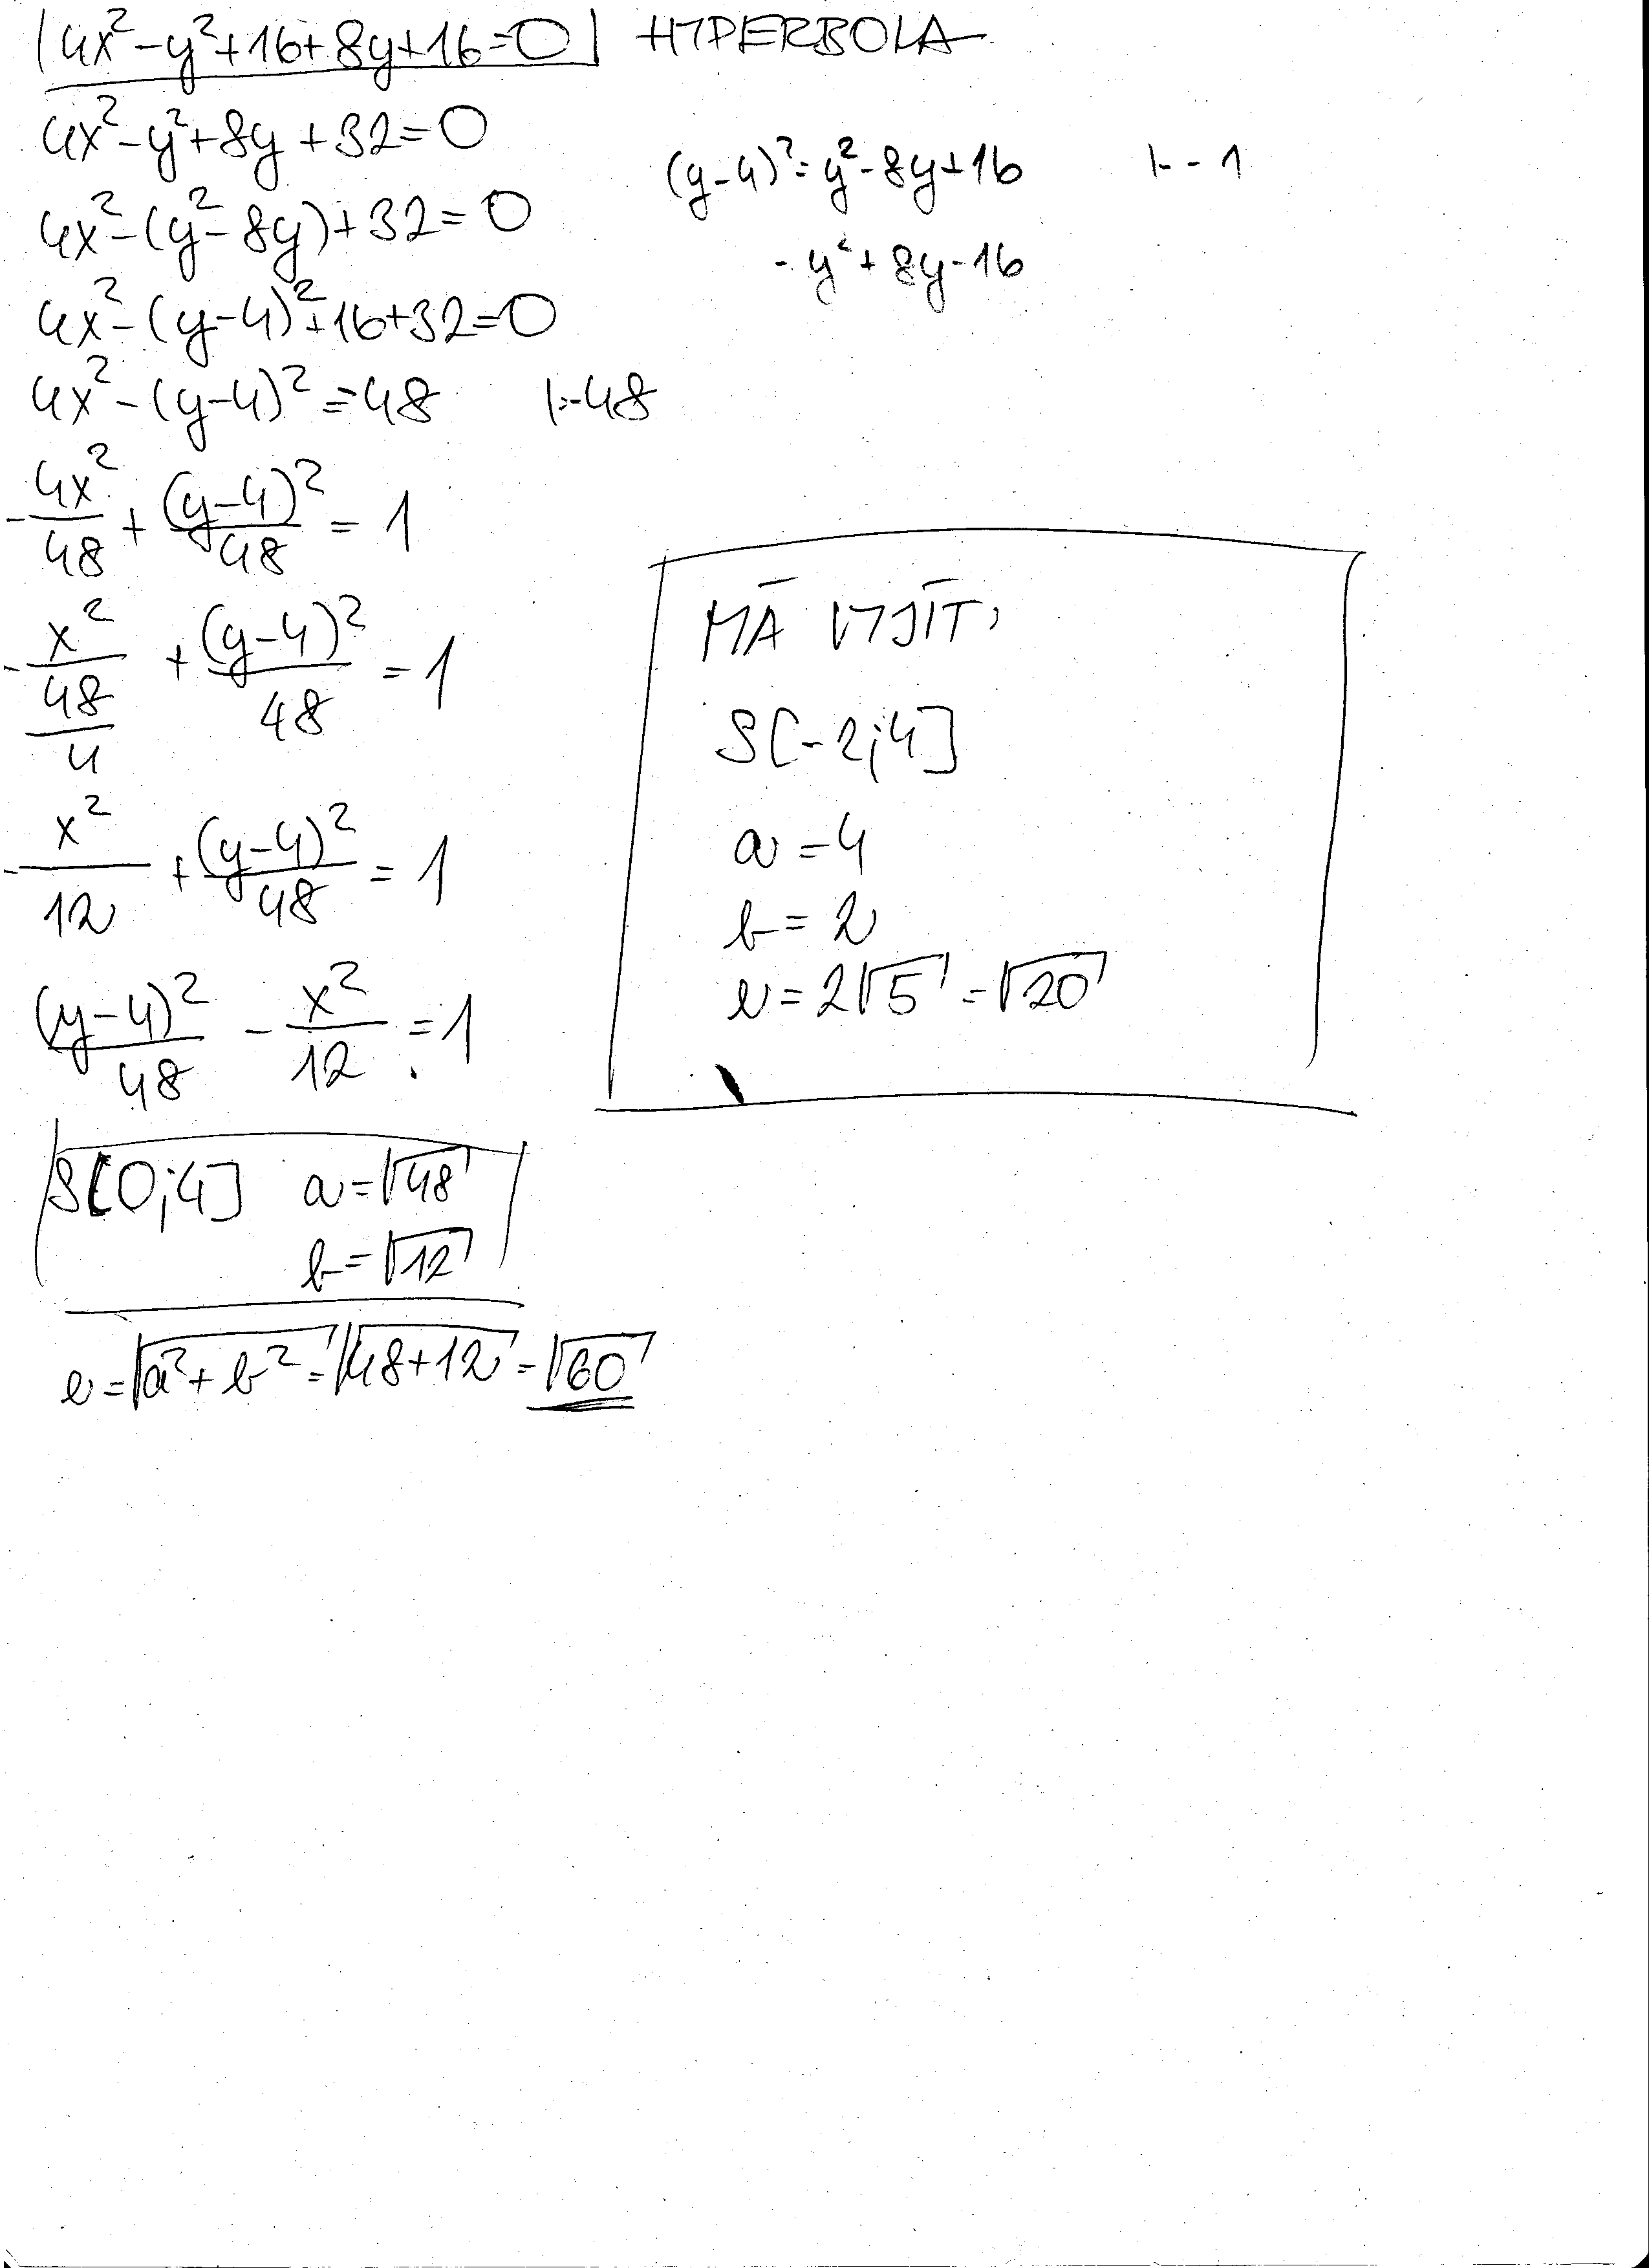 4x²-y²+16+8y+16=0 HYPERBOLA
4x²-y²+8y+32=0
4x²-(y²-8y)+32=0
4x²-(y-4)²+16+32=0
4x²-(y-4)²=48 |:-48
-4x²/48+(y-4)²/48=1
-x²/(48/4)+(y-4)²/48=1
-x²/12+(y-4)²/48=1
(y-4)²/48-x²/12=1
S[0;4] a=√48
b=√12
e=√a²+b²=√48+12=√60
(y-4)²=y²-8y+16 |·-1
-y²+8y-16
MÁ VYJÍT:
S[-2;4]
a=4
b=2
e=2√5=√20